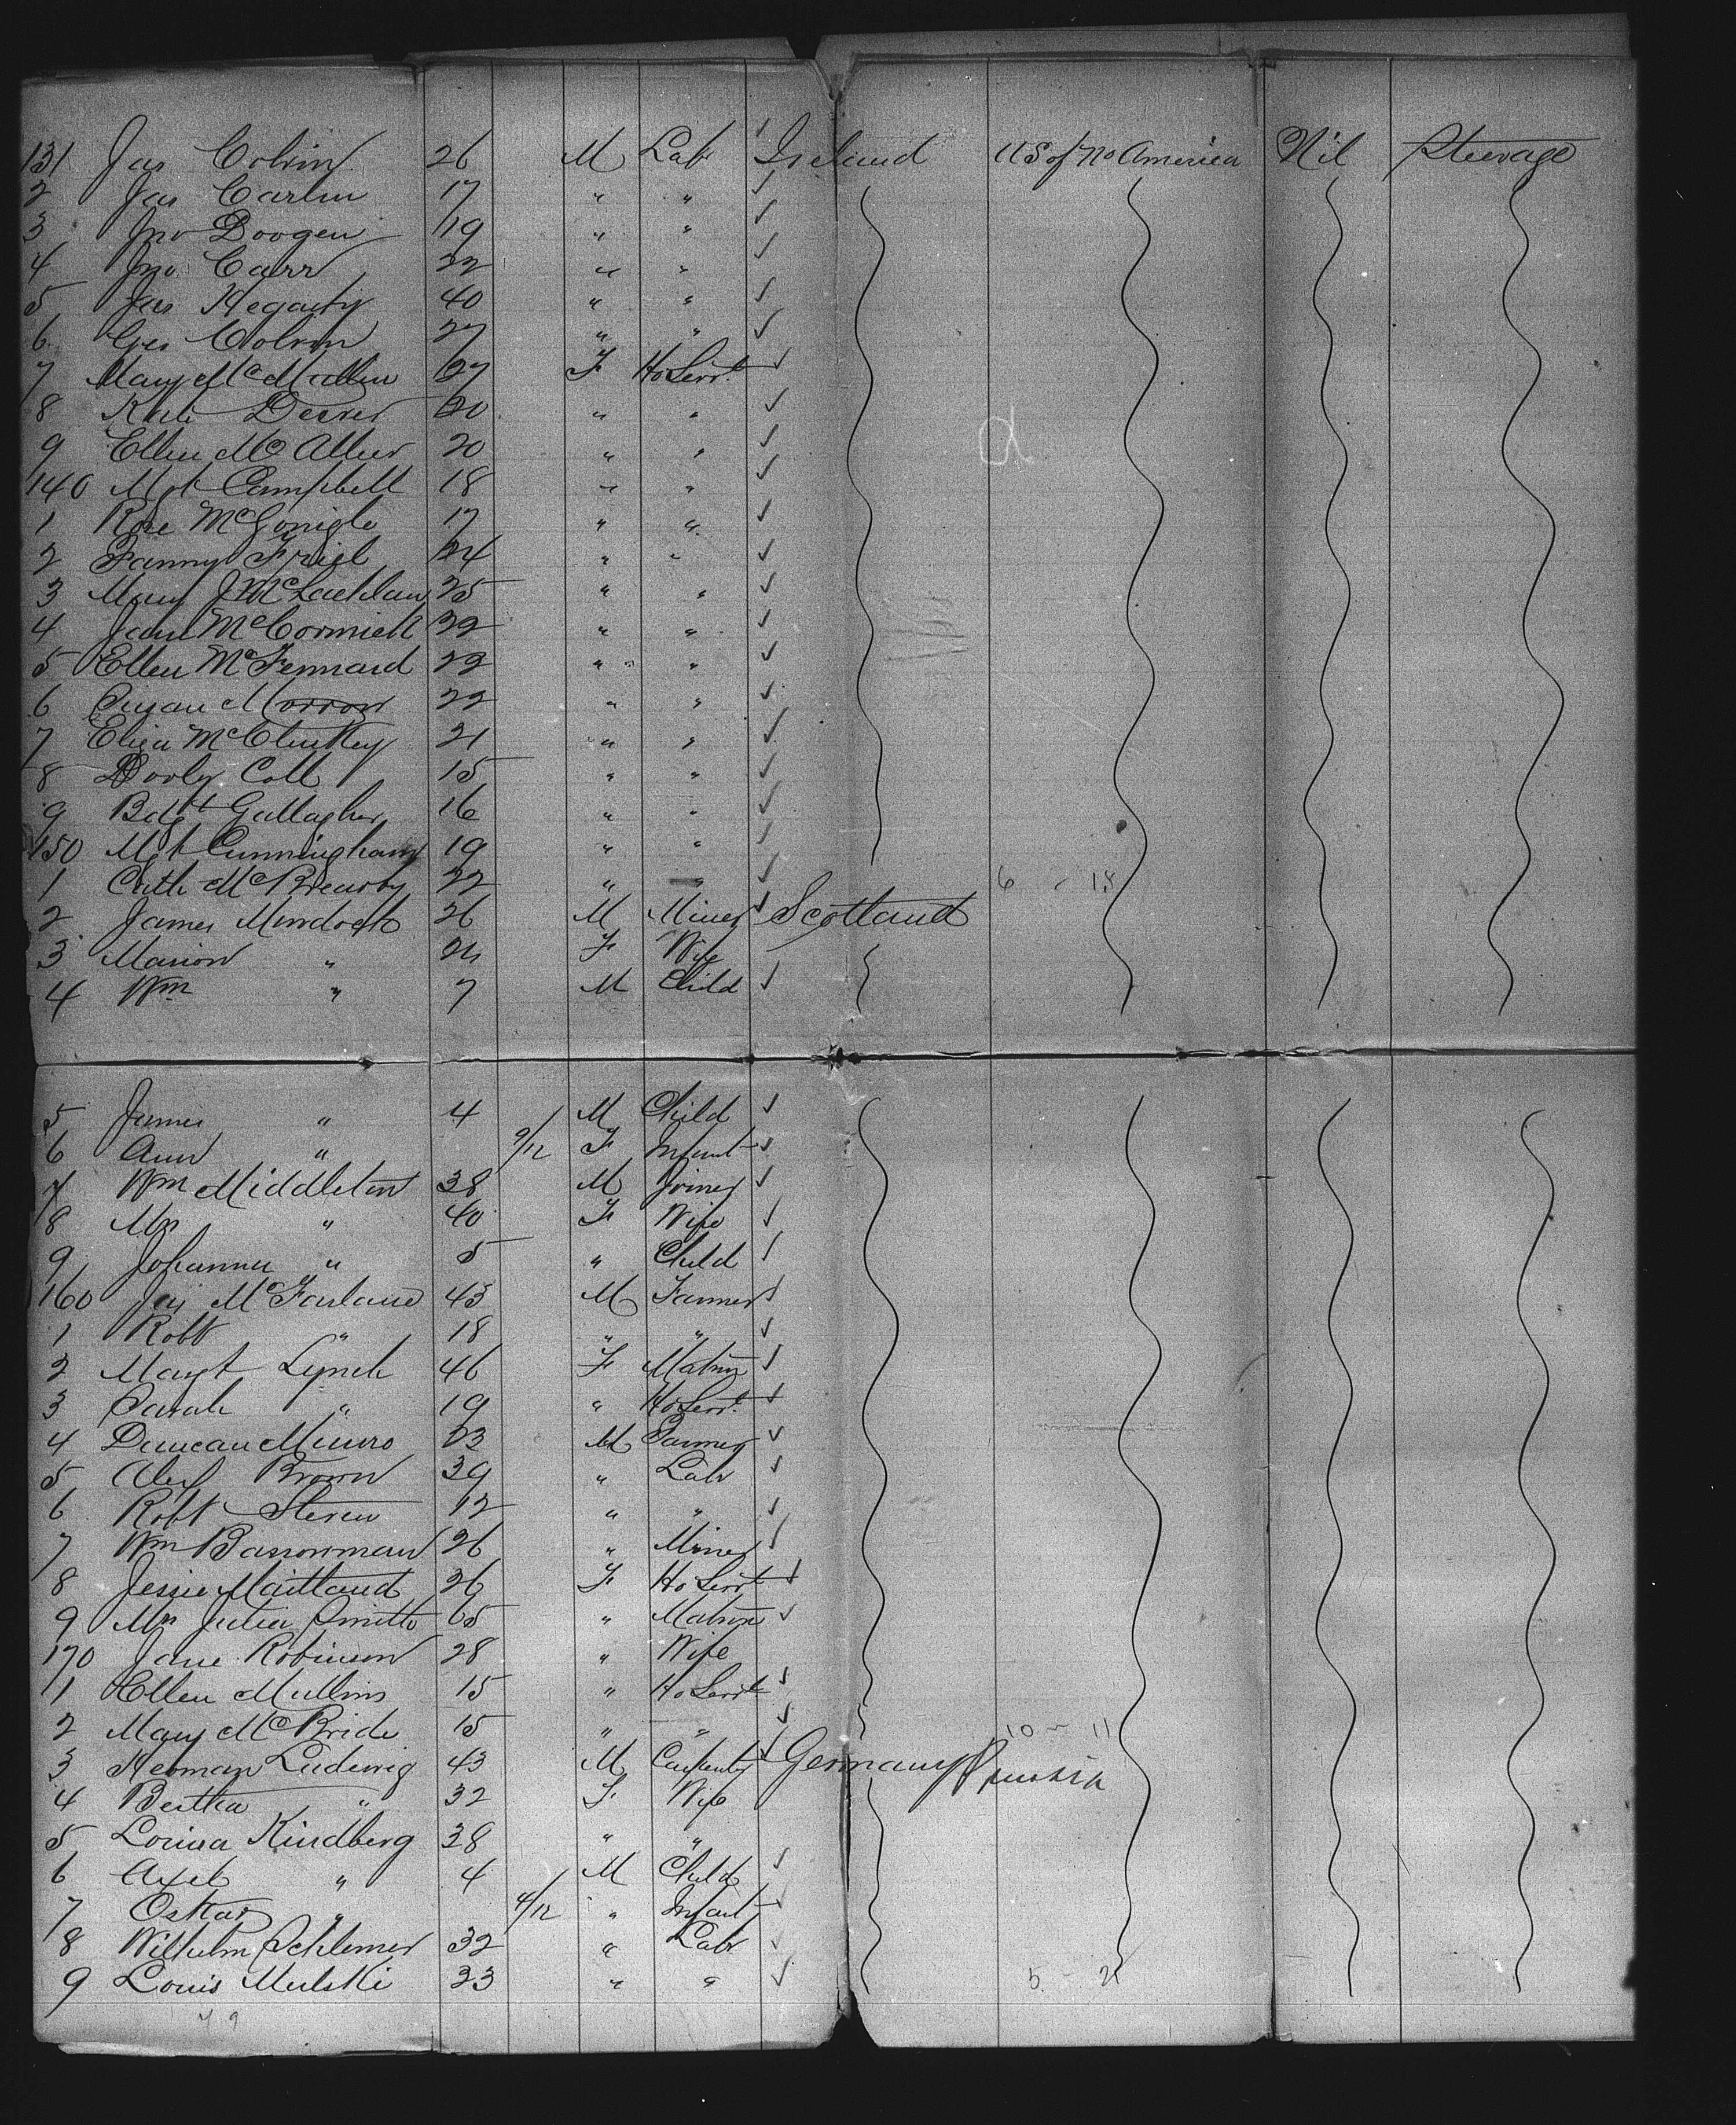 131 Jas Colvin 26 M Lab Ireland U S of No America Nil Steerage
2 Jas Carlin 17 " "
3 Jno Doogen 19 " "
4 Jno Carr 22 " "
5 Jas Hegarty 40 " "
6 Geo Colvin 27 " "
7 Mary McMallin 27 F Ho Servt
8 Kate Deever 20 " "
9 Ellen McAlleer 20 " "
140 Mgt Campbell 18 " "
1 Rose McGonigle 17 " "
2 Fanny Friel 24 " "
3 Mary J McLachlan 25 " "
4 Jane McCormick 22 " "
5 Ellen McFennard 22 " "
6 Susan Morrow 22 " "
7 Eliza McCluskey 21 " "
8 Dooly Coll 15 " "
9 Bdgt Gallagher 16 " "
150 Mgt Cunningham 19 " "
1 Cath McBrearty 22 " " 6 - 18
2 James Murdoch 26 M Miner Scotland
3 Marion " 24 F Wife
4 Wm " 7 M Child
5 James " 4 M Child
6 Ann " 9/12 F Infant
7 Wm Middleton 38 M Joiner
8 Mrs " 40 F Wife
9 Johanna " 5 " Child
160 Jas McFarland 43 M Farmer
1 Robt " 18 " "
2 Margt Lynch 46 F Matron
3 Sarah " 19 " Ho Servt
4 Duncan Munro 23 M Farmer
5 Alex Brown 39 " Lab
6 Robt Steven 12 " "
7 Wm Banowman 26 " Miner
8 Jessie Maitland 26 F Ho Servt
9 Mrs Julia Smith 65 " Matron
170 Jane Robinson 28 " Wife
1 Ellen Mullins 15 " Ho Servt
2 Mary McBride 15 " " 10 - 11
3 Herman Ludwig 43 M Carpenter Germany Prussia
4 Bertha " 32 F Wife
5 Lovisa Kindberg 38 " "
6 Axel " 4 M Child
7 Oskar " 4/12 " Infant
8 Wilhelm Schlemer 32 " Lab
9 Louis Mulski 23 " " 5 - 2
49